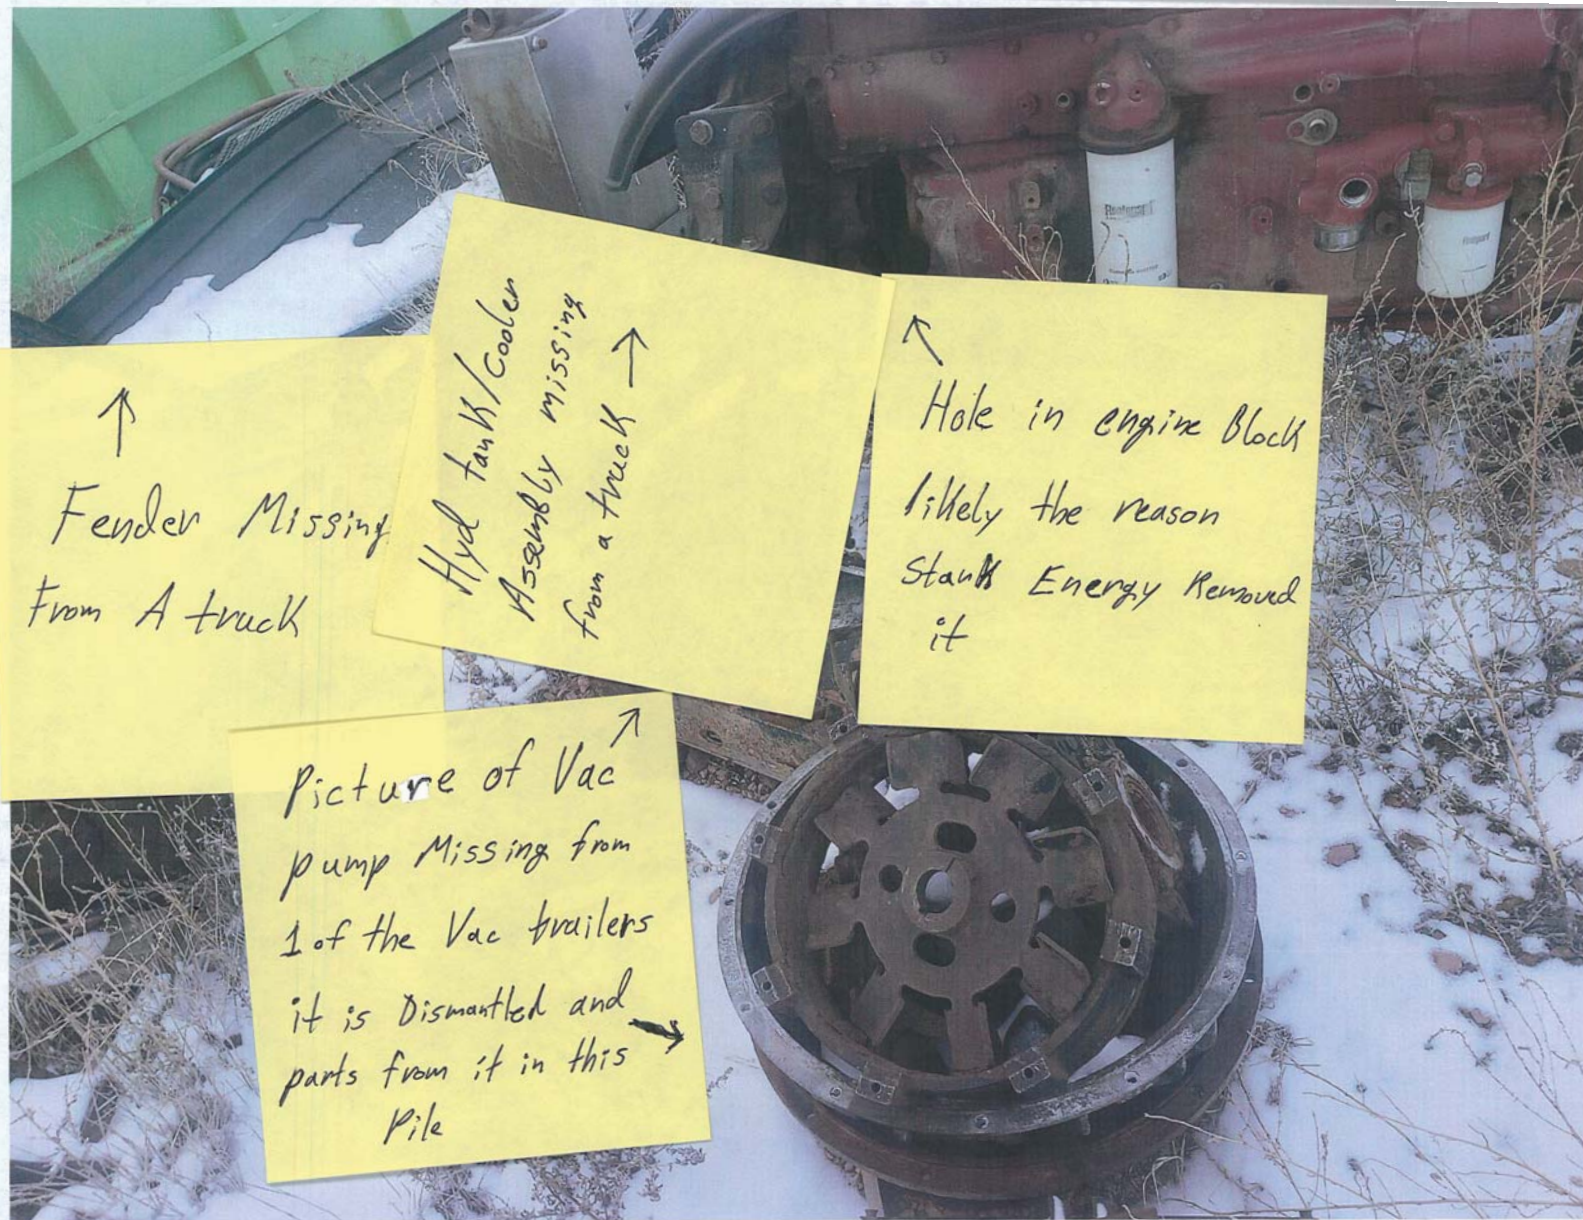 ↑
Fender Missing
From A truck
Hyd tank/cooler
Assembly missing
from a truck →
↖
Hole in engine Block
likely the reason
Stank Energy Removed
it
↗
Picture of Vac
pump Missing from
1 of the Vac trailers
it is Dismantled and →
parts from it in this
Pile
Fleetguard
Fleetguard